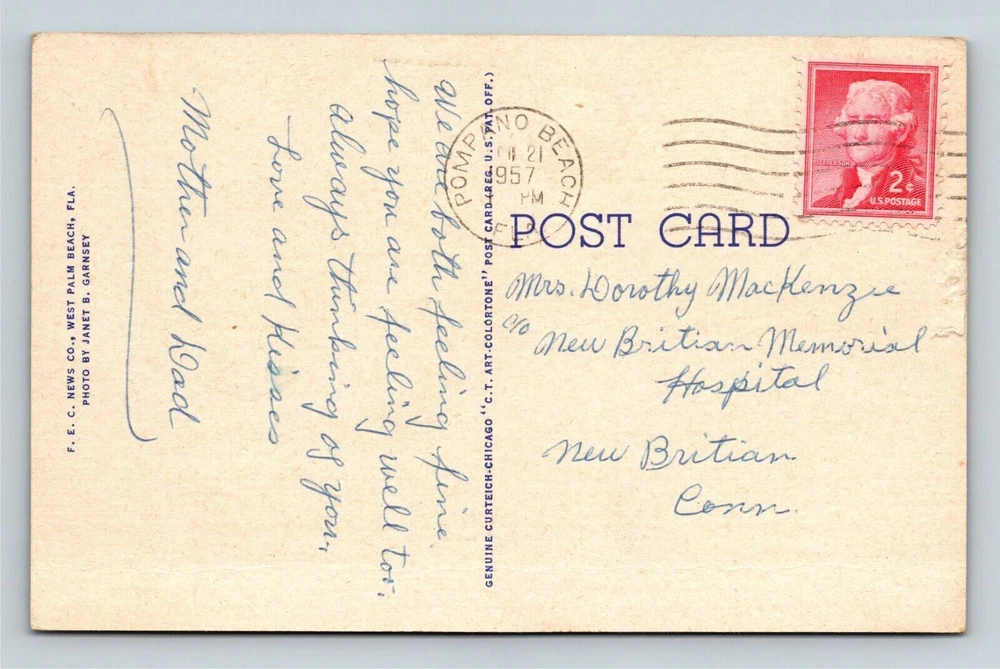 We are both feeling fine.
hope you are feeling well too.
always thinking of you.
Love and Kisses
Mother and Dad
F. E. C. NEWS CO., WEST PALM BEACH, FLA.
PHOTO BY JANET B. GARNSEY
GENUINE CURTEICH-CHICAGO "C.T. ART-COLORTONE" POST CARD (REG. U.S. PAT. OFF.)
POMPANO BEACH
21
1957
PM
FLA
JEFFERSON
2¢
U.S. POSTAGE
POST CARD
Mrs. Dorothy MacKenzie
c/o
New Britian Memorial
Hospital
New Britian
Conn.